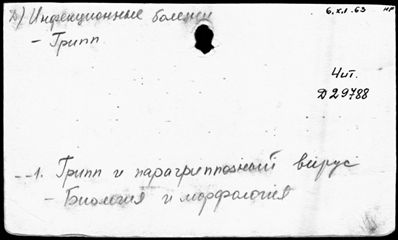 2) Инфекционные болезни
6.XI.63
НР
- Грипп
Чит.
Д29788
--1. Грипп и парагриппозный вирус
- Биология и морфология